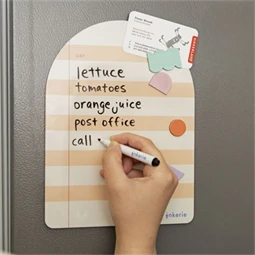 lettuce
tomatoes
orange juice
post office
call
yokario